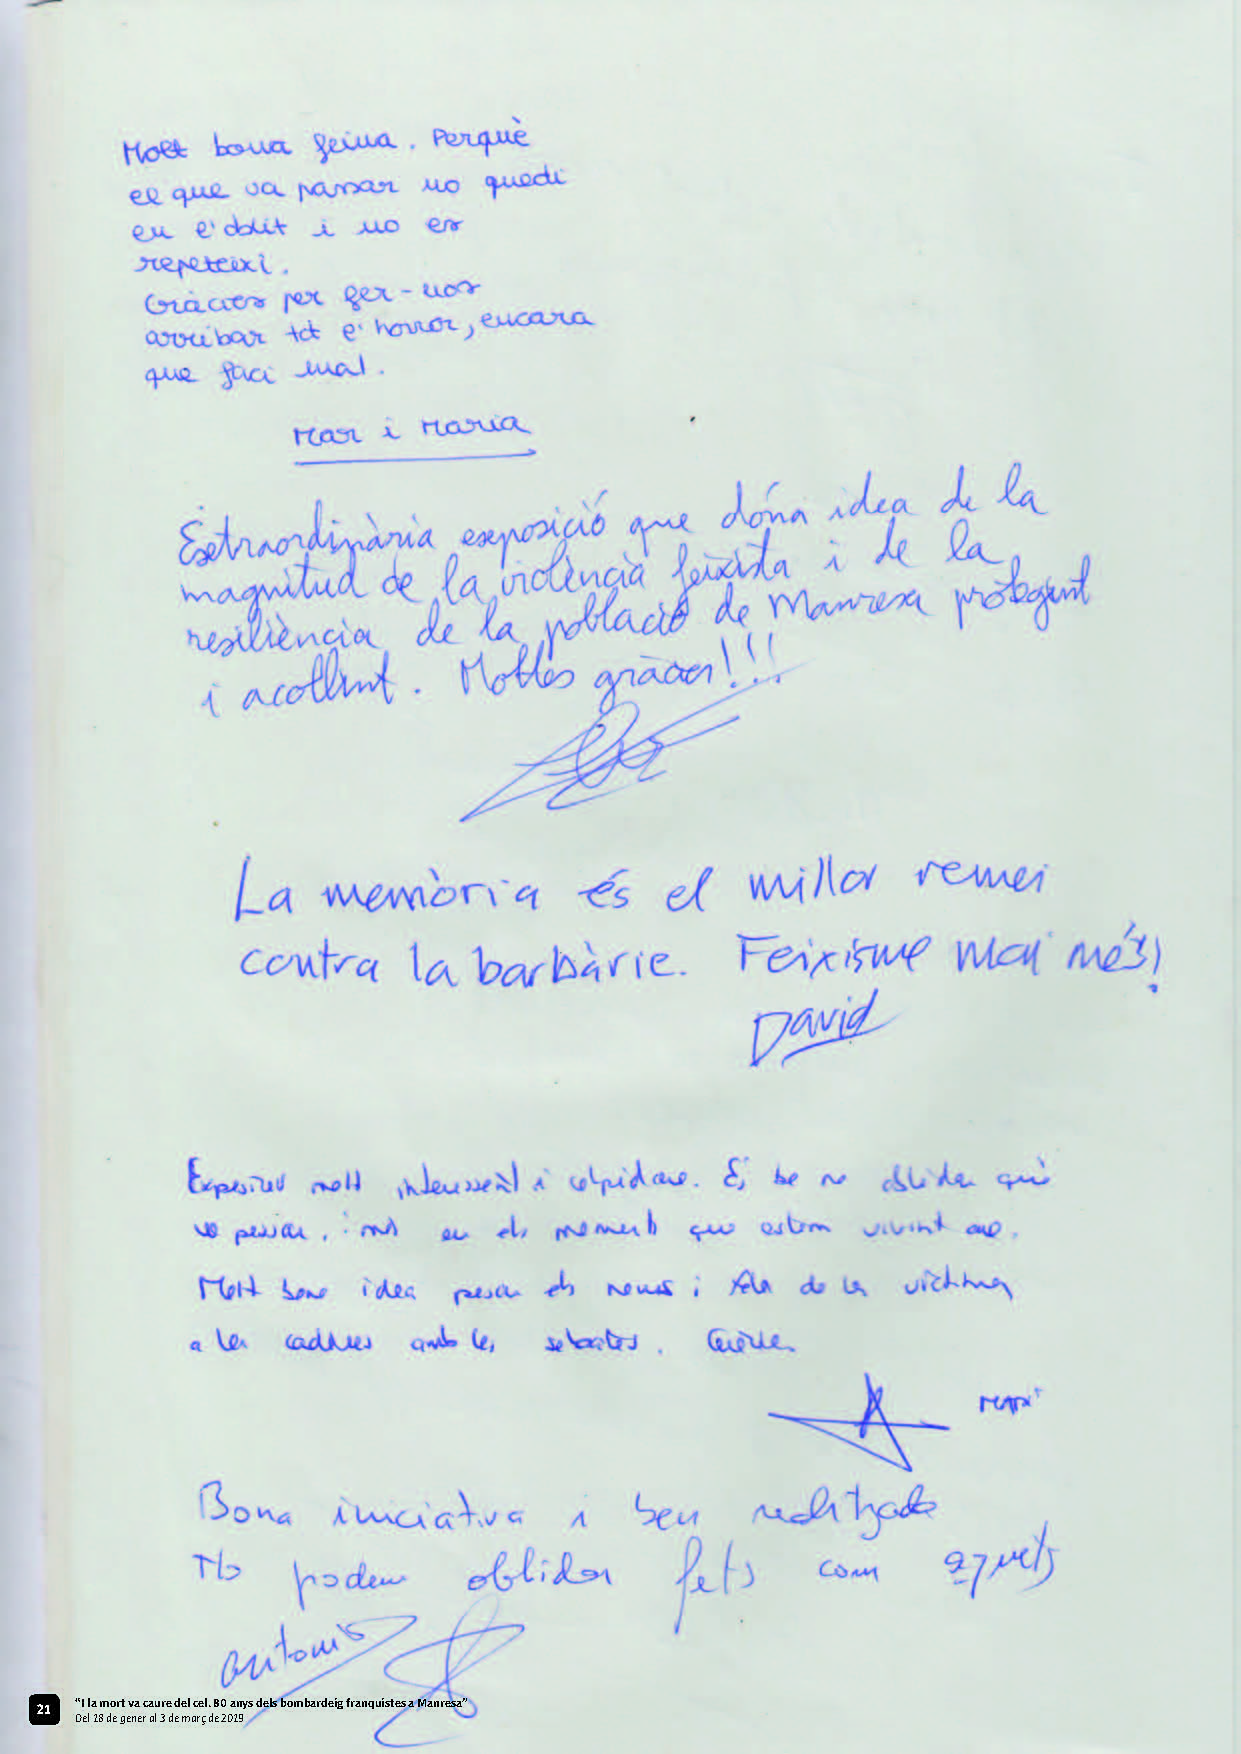 Molt bona feina. Perquè
el que va passar no quedi
en l'oblit i no es
repeteixi.
Gràcies per fer-nos
arribar tot l'horror, encara
que faci mal.
Mar i Maria
Extraordinària exposició que dóna idea de la
magnitud de la violència feixista i de la
resiliència de la població de Manresa protegint
i acollint. Moltes gràcies!!!
La memòria és el millor remei
contra la barbàrie. Feixisme mai més!
David
Exposició molt interessant i colpidora. És be no oblidar què
va passar, i més en els moments que estem vivint ara.
Molt bona idea posar els noms i de les víctimes
a les cadires amb les sabates. Gràcies
Bona iniciativa i ben realitzada
No podem oblidar fets com aquets
Antonio
21
"I la mort va caure del cel. 80 anys dels bombardeig franquistes a Manresa"
Del 18 de gener al 3 de març de 2019